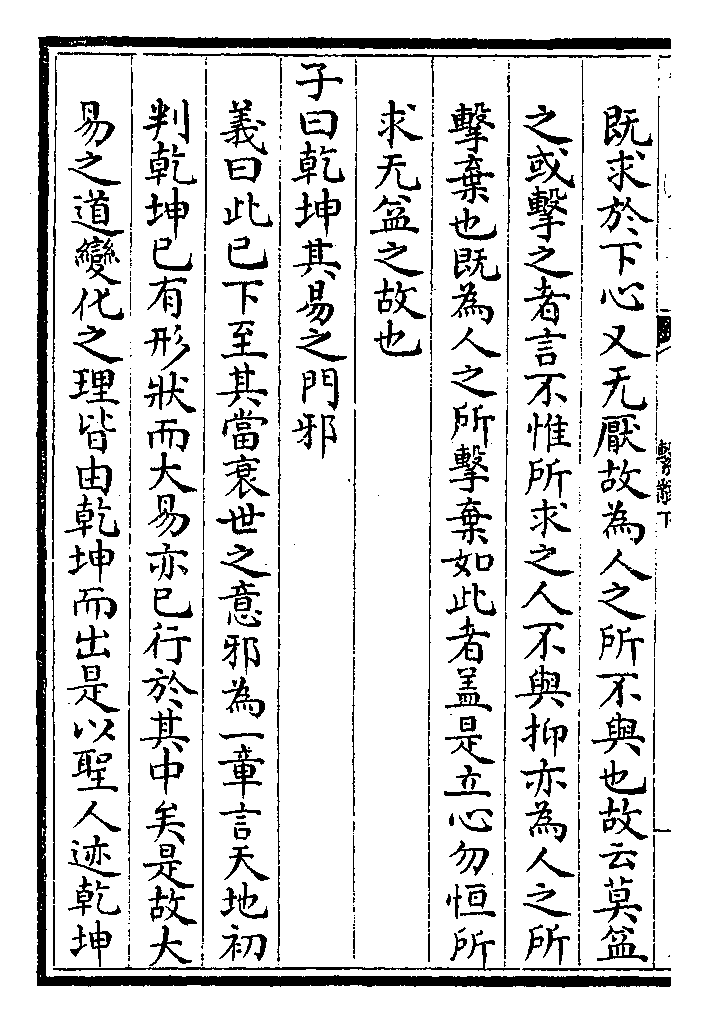 既求於下心又无厭故為人之所不與也故云莫益
之或擊之者言不惟所求之人不與抑亦為人之所
擊棄也既為人之所擊棄如此者蓋是立心勿恒所
求无益之故也
子曰乾坤其易之門邪
義曰此已下至其當衰世之意邪為一章言天地初
判乾坤已有形狀而大易亦已行於其中矣是故大
易之道變化之理皆由乾坤而出是以聖人迹乾坤